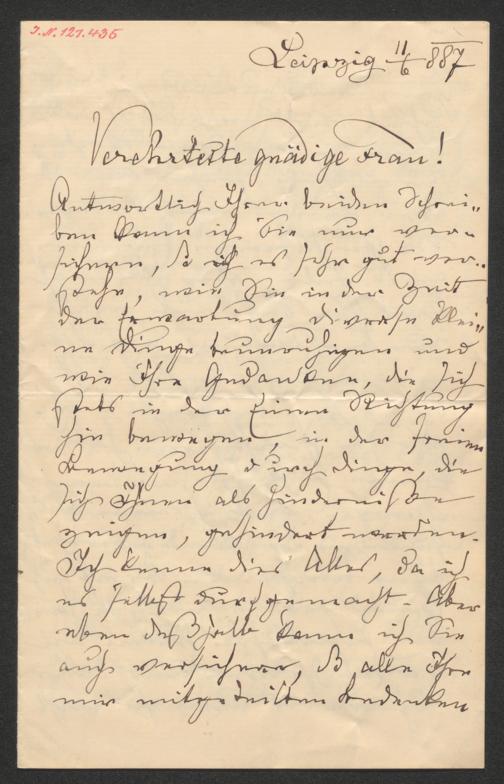 J.N. 121.435
Leipzig 11/6 887
Verehrteste gnädige Frau!
Antwortlich Ihrer beiden Schrei-
ben kann ich Sie nur ver-
sichern, daß ich es sehr gut ver-
stehe, wie Sie in der Zeit
der Erwartung diverse klei-
ne Dinge beunruhigen und
wie Ihre Gedanken, die sich
stets in der Einen Richtung
hin bewegen, in der freien
Bewegung durch Dinge, die
sich Ihnen als Hindernisse
zeigen, gehindert werden.
Ich kenne dies Alles, da ich
es selbst durchgemacht. Aber
eben deßhalb kann ich Sie
auch versichern, daß alle Ihre
mir mitgeteilten Bedenken